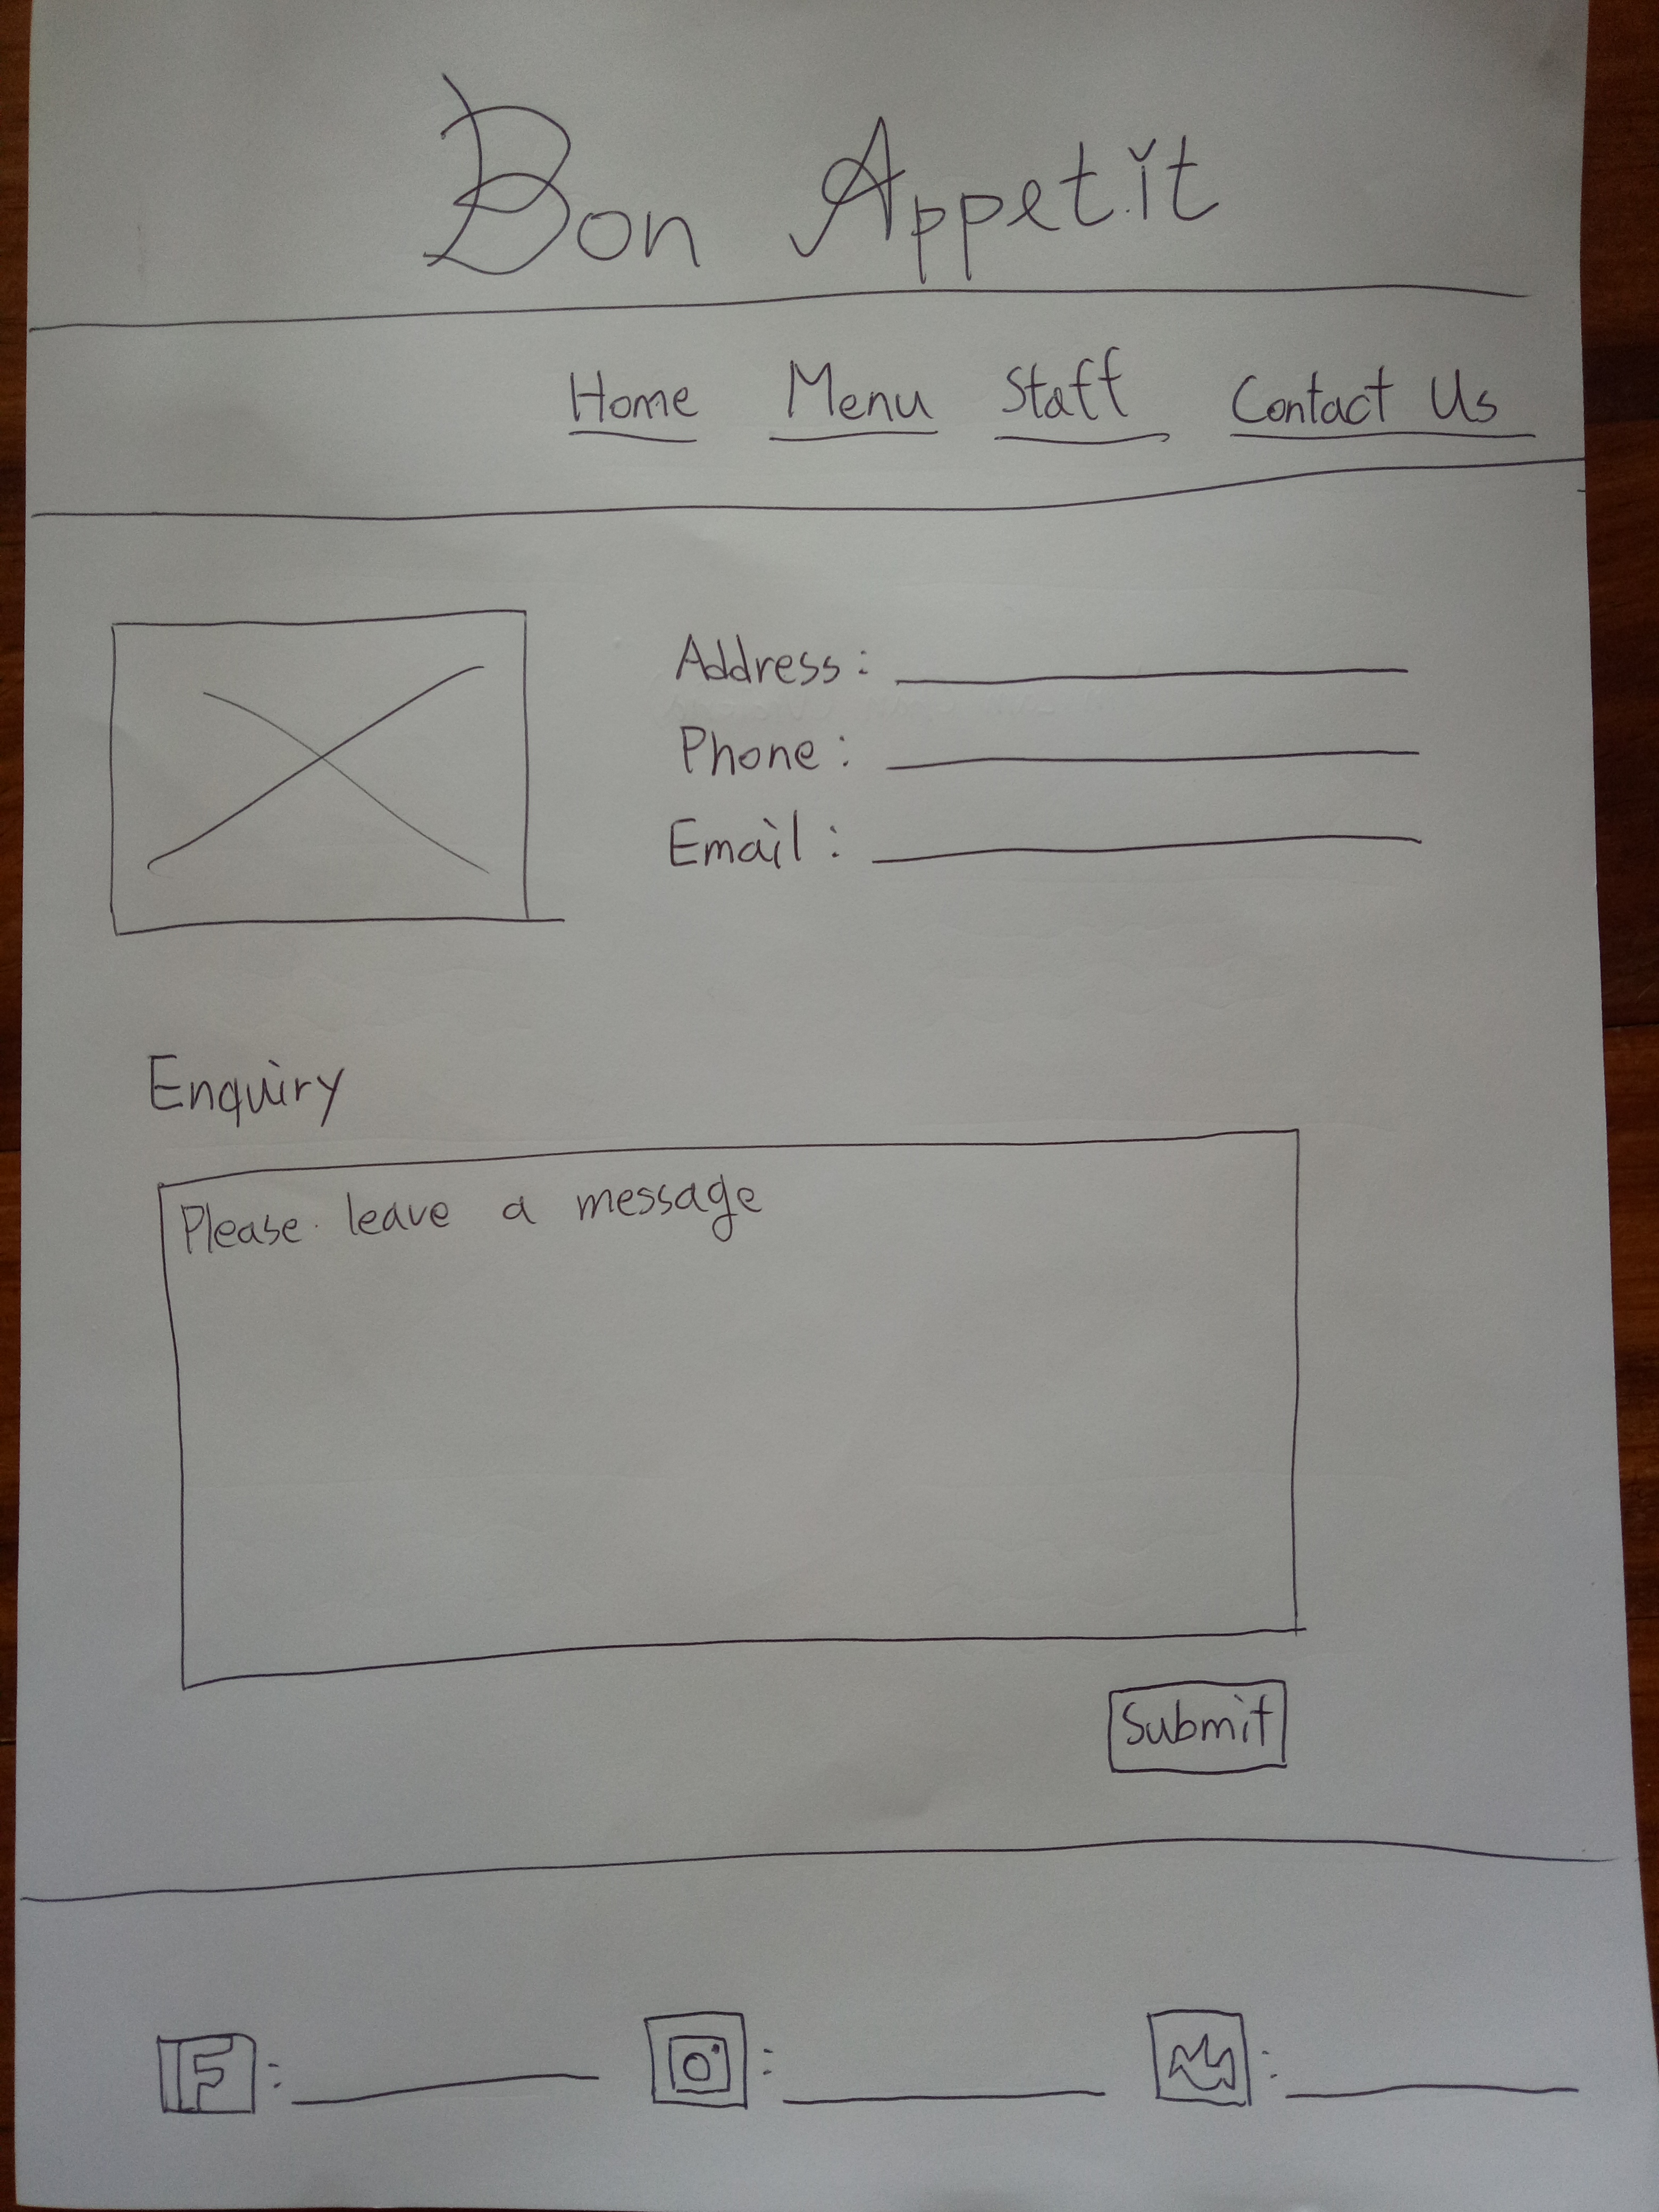 Bon Appetit
Home Menu Staff Contact Us
Address:
Phone:
Email:
Enquiry
Please leave a message
Submit
F : : :